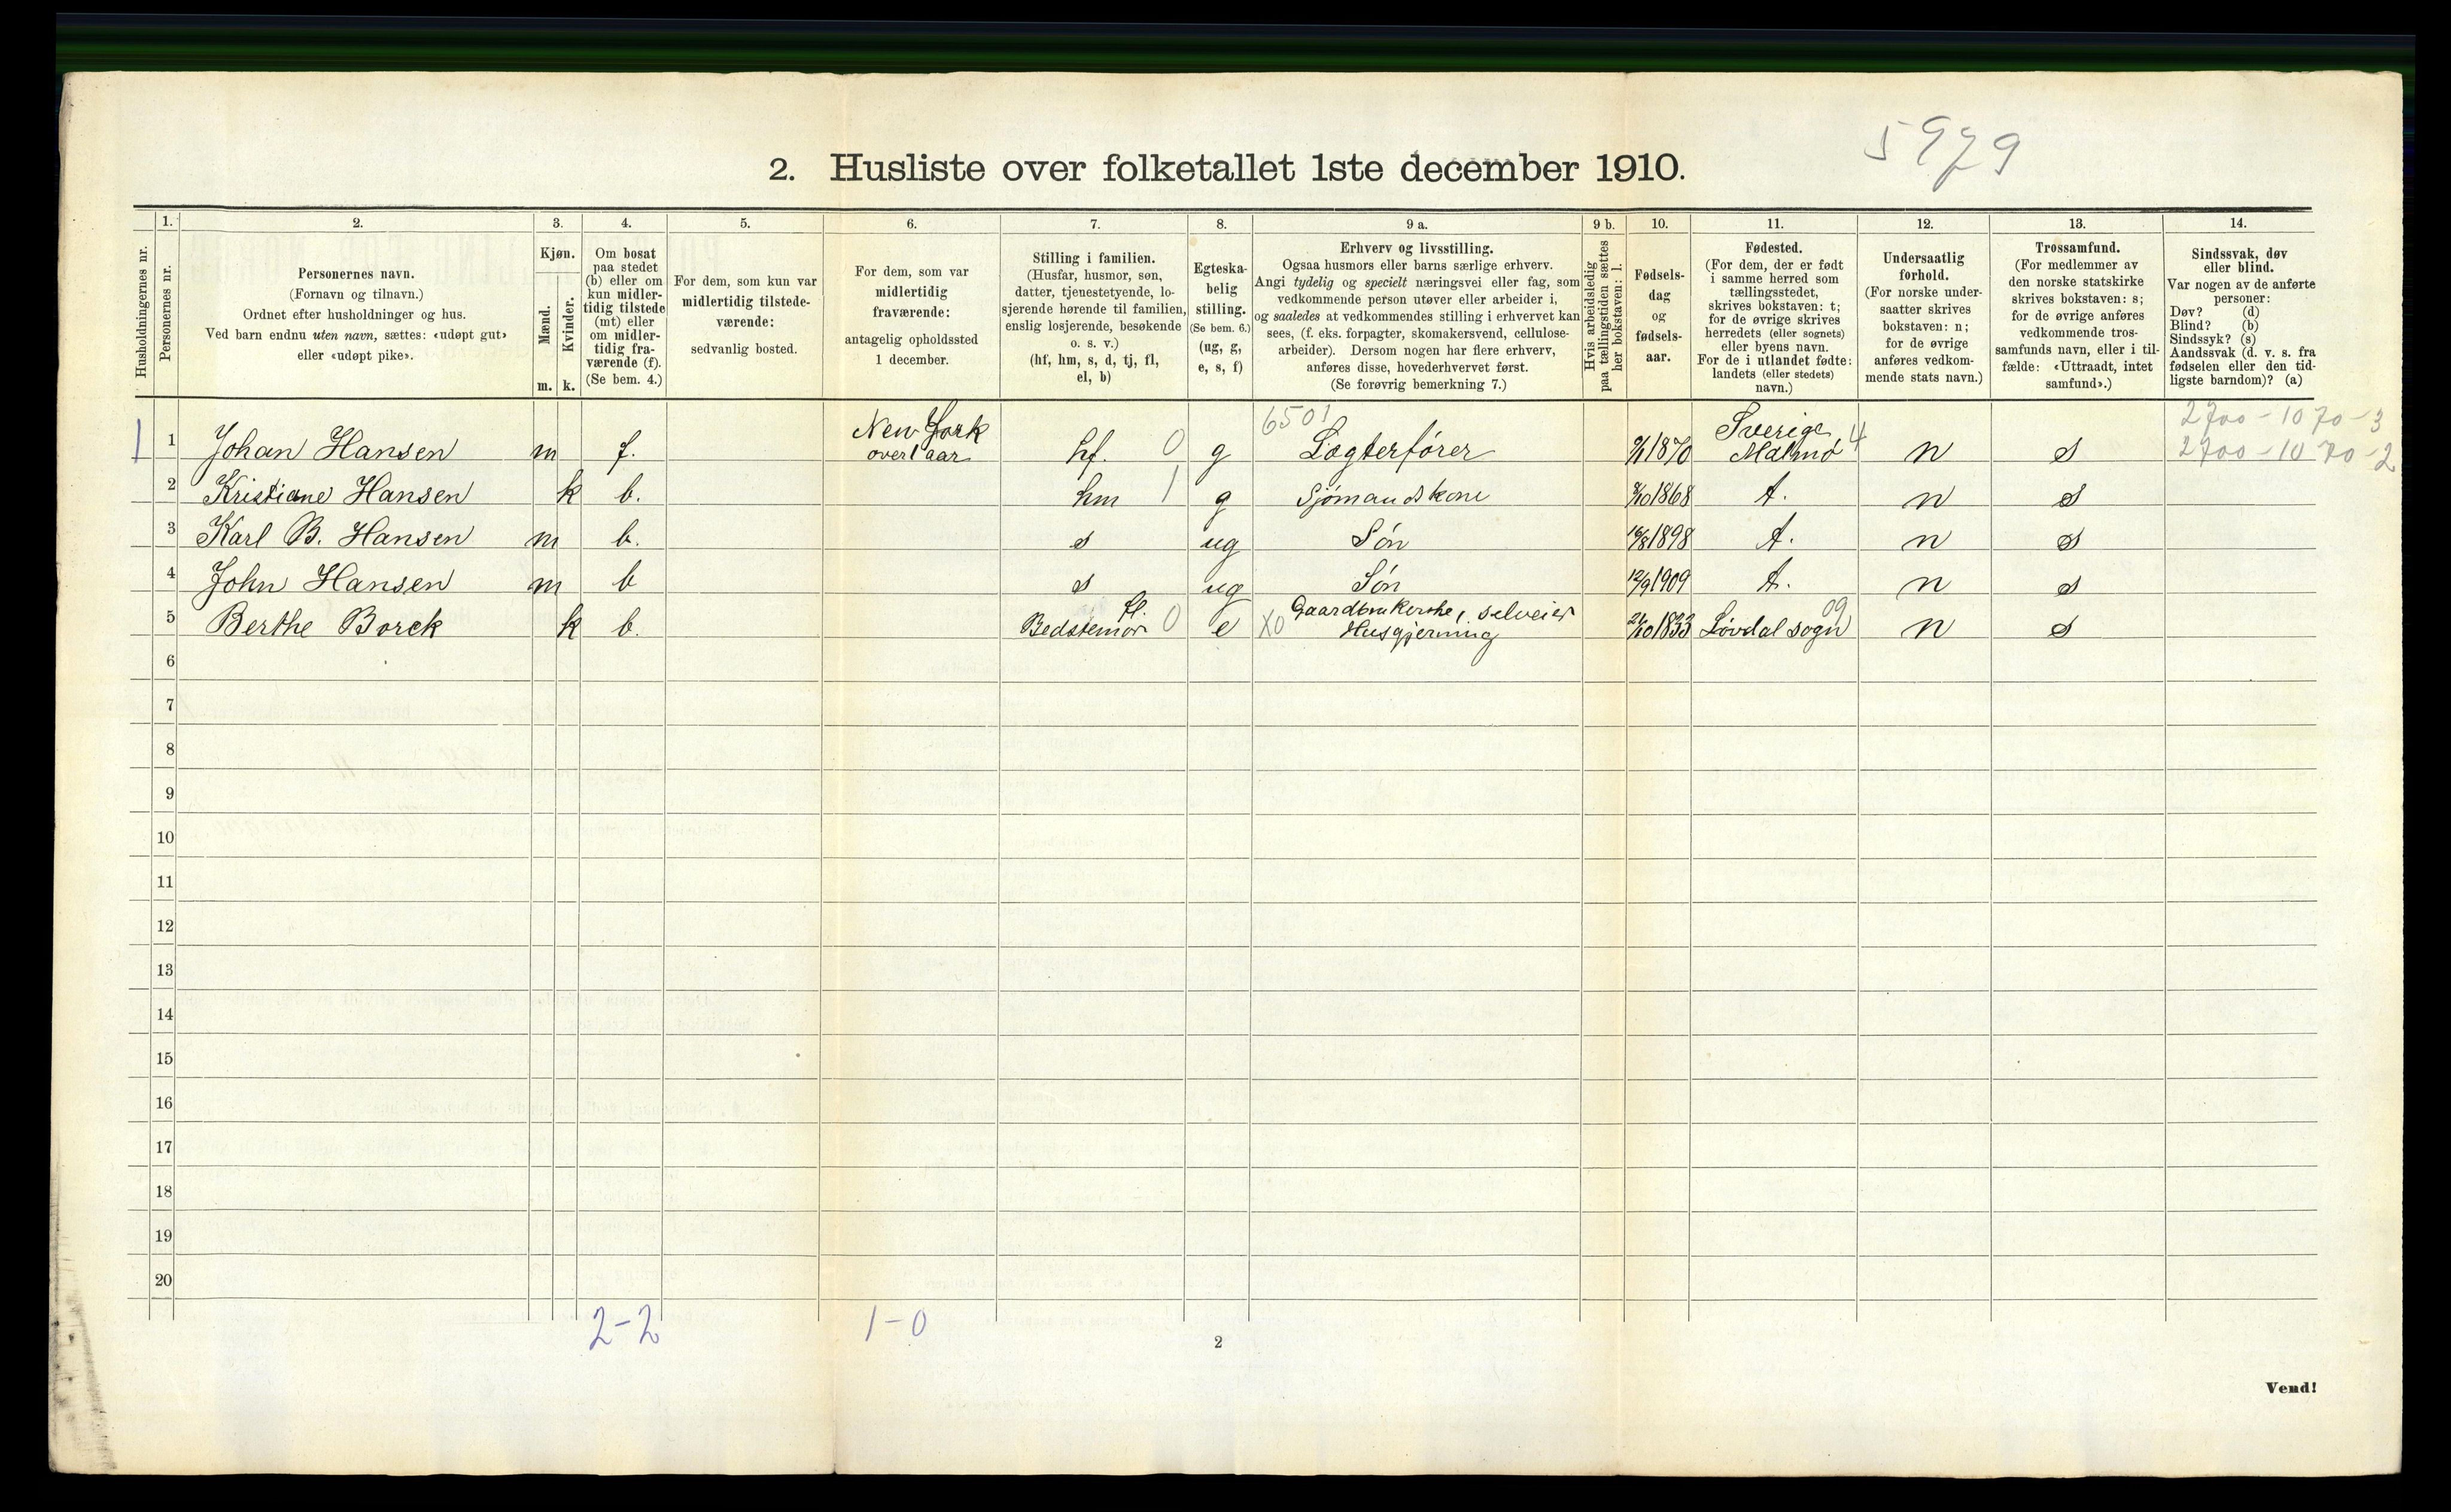 5979
2. Husliste over folketallet 1ste december 1910.
1. 2. 3. 4. 5. 6. 7. 8. 9 a. 9 b. 10. 11. 12. 13. 14.
Husholdningernes nr.
Personernes nr.
Personernes navn.
(Fornavn og tilnavn.)
Ordnet efter husholdninger og hus.
Ved barn endnu uten navn, sættes: «udøpt gut»
eller «udøpt pike».
Kjøn.
Mænd.
Kvinder.
m. k.
Om bosat
paa stedet
(b) eller om
kun midler-
tidig tilstede
(mt) eller
om midler-
tidig fra-
værende (f).
(Se bem. 4.)
For dem, som kun var
midlertidig tilstede-
værende:
sedvanlig bosted.
For dem, som var
midlertidig
fraværende:
antagelig opholdssted
1 december.
Stilling i familien.
(Husfar, husmor, søn,
datter, tjenestetyende, lo-
sjerende hørende til familien,
enslig losjerende, besøkende
o. s. v.)
(hf, hm, s, d, tj, fl,
el, b)
Egteska-
belig
stilling.
(Se bem. 6.)
(ug, g,
e, s, f)
Erhverv og livsstilling.
Ogsaa husmors eller barns særlige erhverv.
Angi tydelig og specielt næringsvei eller fag, som
vedkommende person utøver eller arbeider i,
og saaledes at vedkommendes stilling i erhvervet kan
sees, (f. eks. forpagter, skomakersvend, cellulose-
arbeider). Dersom nogen har flere erhverv,
anføres disse, hovederhvervet først.
(Se forøvrig bemerkning 7.)
Hvis arbeidsledig
paa tællingstiden sættes
her bokstaven: l.
Fødsels-
dag
og
fødsels-
aar.
Fødested.
(For dem, der er født
i samme herred som
tællingsstedet,
skrives bokstaven: t;
for de øvrige skrives
herredets (eller sognets)
eller byens navn.
For de i utlandet fødte:
landets (eller stedets)
navn.)
Undersaatlig
forhold.
(For norske under-
saatter skrives
bokstaven: n;
for de øvrige
anføres vedkom-
mende stats navn.)
Trossamfund.
(For medlemmer av
den norske statskirke
skrives bokstaven: s;
for de øvrige anføres
vedkommende tros-
samfunds navn, eller i til-
fælde: «Uttraadt, intet
samfund».)
Sindssvak, døv
eller blind.
Var nogen av de anførte
personer:
Døv? (d)
Blind? (b)
Sindssyk? (s)
Aandssvak (d. v. s. fra
fødselen eller den tid-
ligste barndom)? (a)
New York 6501 Sverige 2700-1070-3
1 1 Johan Hansen m f. over 1 aar hf. 0 g Lægterfører 1870 Malmø 4 n s 2700-1070-2
2 Kristiane Hansen k b. hm 1 g Sjømandskone 1868 t. n s
3 Karl B. Hansen m b. s ug Søn 1898 t. n s
4 John Hansen m b s ug Søn 12/9 1909 t. n s
fl. Gaardbrukerske, selveier 09
5 Berthe Borck k b. Bedstemor 0 e X0 Husgjerning 1833 Løvdal sogn n s
6
7
8
9
10
11
12
13
14
15
16
17
18
19
20
2-2 1-0
2
Vend!